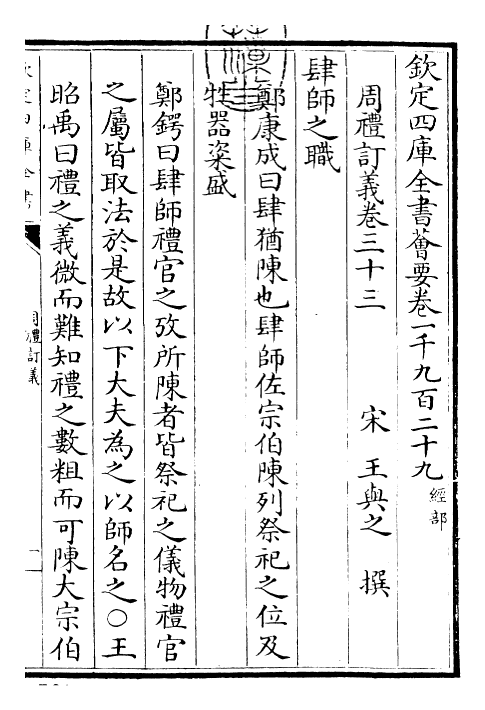 欽定四庫全書薈要卷一千九百二十九 經部
周禮訂義卷三十三 宋 王與之 撰
肆師之職
鄭康成曰肆猶陳也肆師佐宗伯陳列祭祀之位及
牲器粢盛
鄭鍔曰肆師禮官之攷所陳者皆祭祀之儀物禮官
之屬皆取法於是故以下大夫為之以師名之○王
昭禹曰禮之義微而難知禮之數粗而可陳大宗伯
周禮訂義